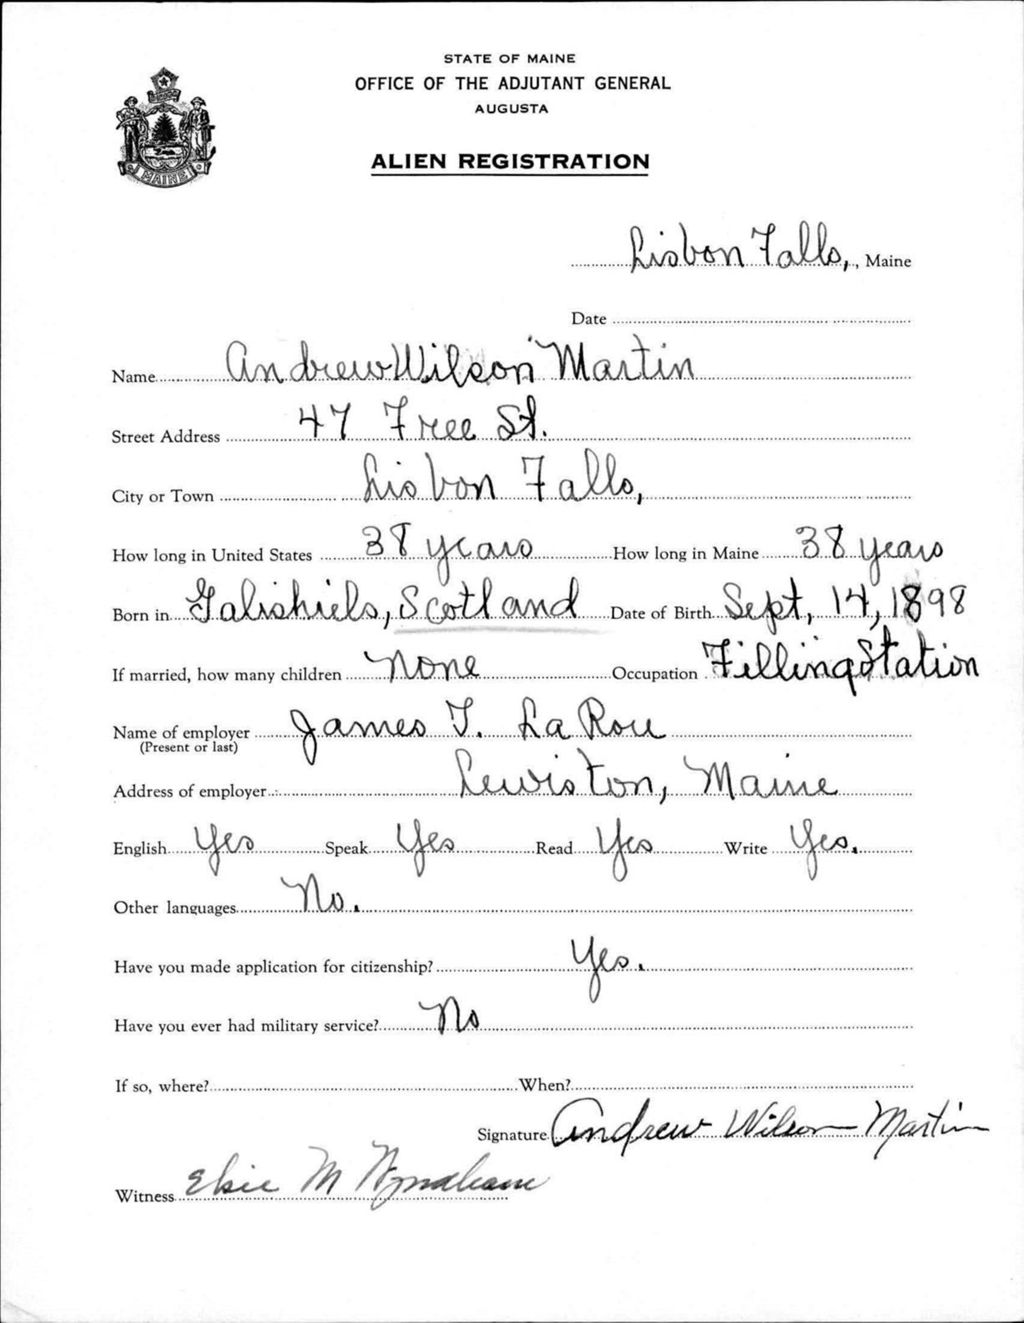 STATE OF MAINE
OFFICE OF THE ADJUTANT GENERAL
AUGUSTA
ALIEN REGISTRATION
MAINE
Lisbon Falls, , Maine
Date
Name Andrew Wilson Martin
Street Address 47 Free St.
City or Town Lisbon Falls,
How long in United States 38 years How long in Maine 38 years
Born in Galishiels, Scotland Date of Birth Sept, 14, 1898
If married, how many children None Occupation Filling Station
Name of employer James T. La Rou
(Present or last)
Address of employer Lewiston, Maine
English Yes Speak Yes Read Yes Write Yes.
Other languages No.
Have you made application for citizenship? Yes.
Have you ever had military service? No
If so, where? When?
Signature Andrew Wilson Martin
Witness Elsie M